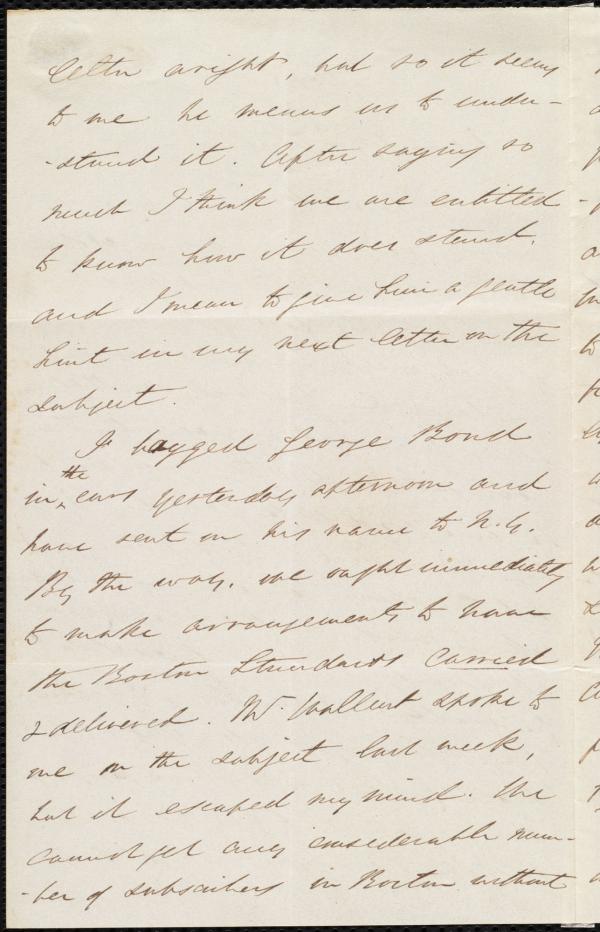 letter aright, but so it seems
to me he means us to under-
-stand it. After saying so
much I think we are entitled
to know how it does stand,
and I mean to give him a gentle
hint in my next letter on the
subject.
I bagged George Bond
in the cars yesterday afternoon and
have sent on his name to N.Y.
By the way, we ought immediately
to make arrangements to have
the Boston Standards carried
& delivered. Mr. Wallcut spoke to
me on the subject last week,
but it escaped my mind. We
cannot get any considerable num-
-ber of subscribers in Boston without